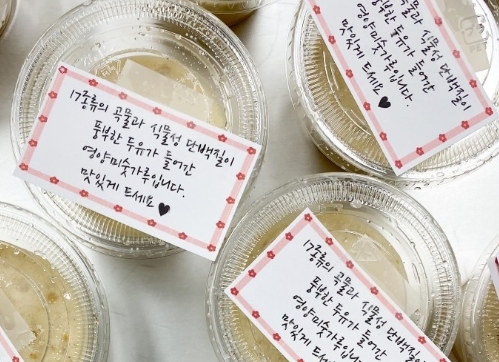 17종류의 곡물과 식물성 단백질이
풍부한 두유가 들어간
영양미숫가루입니다.
맛있게 드세요♥
곡물과 식물성 단백질이
풍부한 두유가 들어간
영양미숫가루입니다.
맛있게 드세요♥
17종류의 곡물과 식물성 단백질이
풍부한 두유가 들어간
영양미숫가루입니다.
맛있게 드세요